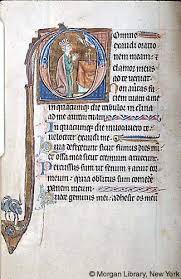 omine
exaudi oratio
nem meam et
clamor meus
ad te veniat
Non avertas faciem
in quacumque die tribulor inclina
In quacumque die invocavero te
velociter exaudi me
defecerunt sicut fumus dies mei
et ossa mea sicut
Percussus sum ut fenum et aruit
cor meum quia oblitus sum comede
panem meum
voce gemitus mei adhesit os meum
© Morgan Library, New York